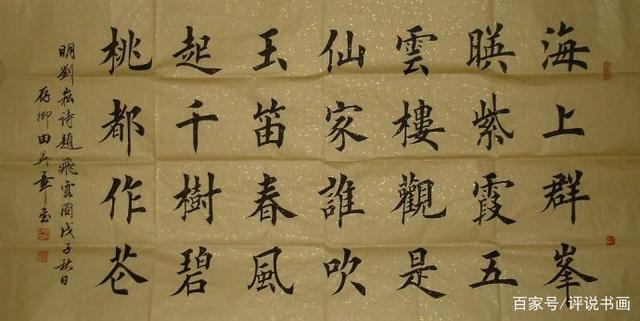 海上群峯
暎紫霞五
雲樓觀是
仙家誰吹
玉笛春風
起千樹碧
桃都作花
明劉崧詩題飛雲圖戊子秋日
存卿田英章書
百家号/评说书画